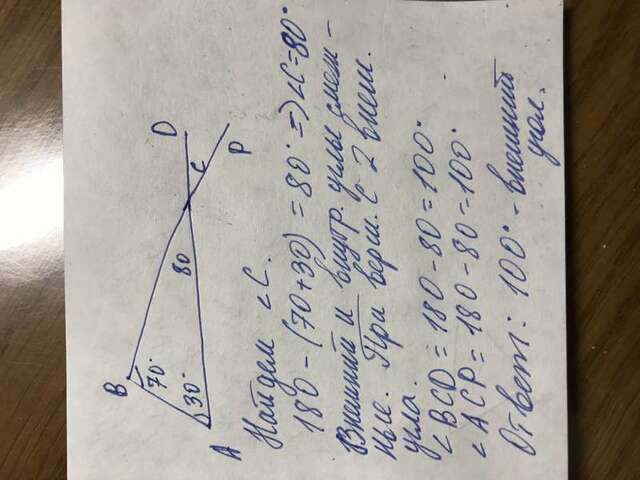 B
70°
D
80
30°
C
A
P
Найдем ∠C.
180 - (70+30) = 80° => ∠C = 80°
Внешний и внутр. углы смеж-
ные. При верш. C 2 внеш.
угла.
∠BCD = 180 - 80 = 100°
∠ACP = 180 - 80 = 100°
Ответ: 100° - внешний
угол.